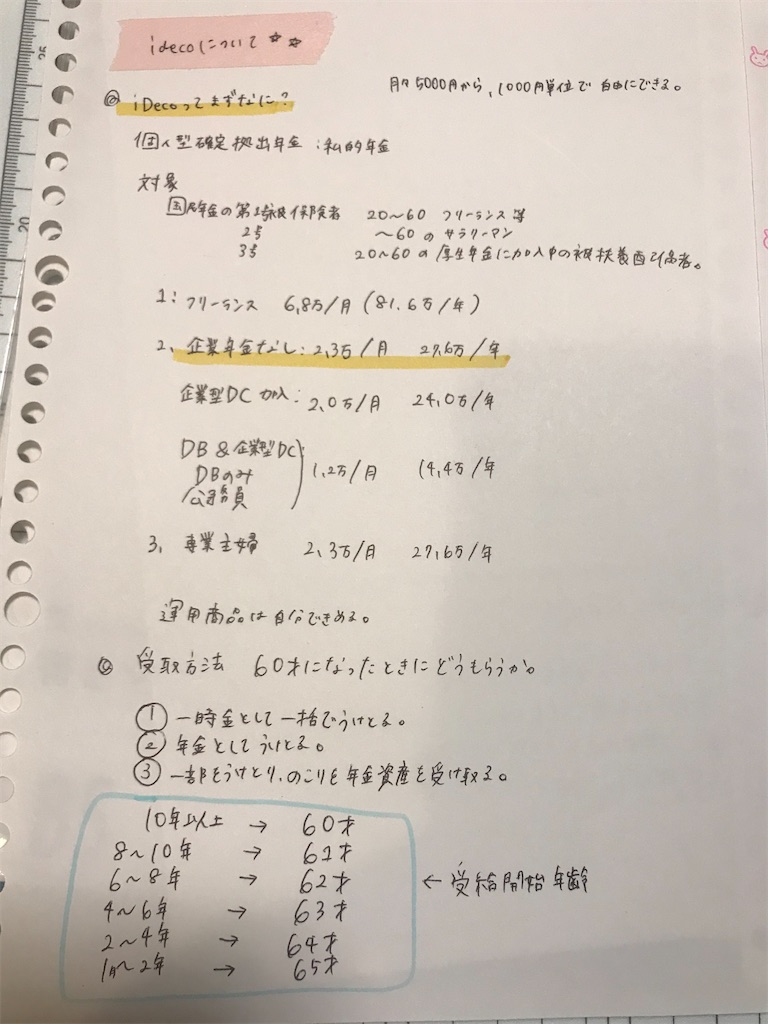 idecoについて☆☆
月々5000円から、1000円単位で自由にできる。
◎ iDecoってまずなに？
個人型確定拠出年金：私的年金
対象
国民年金の第1号被保険者 20〜60 フリーランス等
2号 〜60のサラリーマン
3号 20〜60の厚生年金に加入中の被扶養配偶者。
1：フリーランス 6,8万/月(81.6万/年)
2、企業年金なし：2,3万/月 27,6万/年
企業型DC加入：2,0万/月 24,0万/年
DB&企業型DC
DBのみ 1,2万/月 14,4万/年
公務員
3、専業主婦 2,3万/月 27,6万/年
運用商品は自分できめる。
◎ 受取方法 60才になったときにどうもらうか。
① 一時金として一括でうけとる。
② 年金としてうけとる。
③ 一部をうけとり、のこりを年金資産を受け取る。
10年以上 → 60才
8〜10年 → 61才
6〜8年 → 62才 ← 受給開始年齢
4〜6年 → 63才
2〜4年 → 64才
1月〜2年 → 65才
20